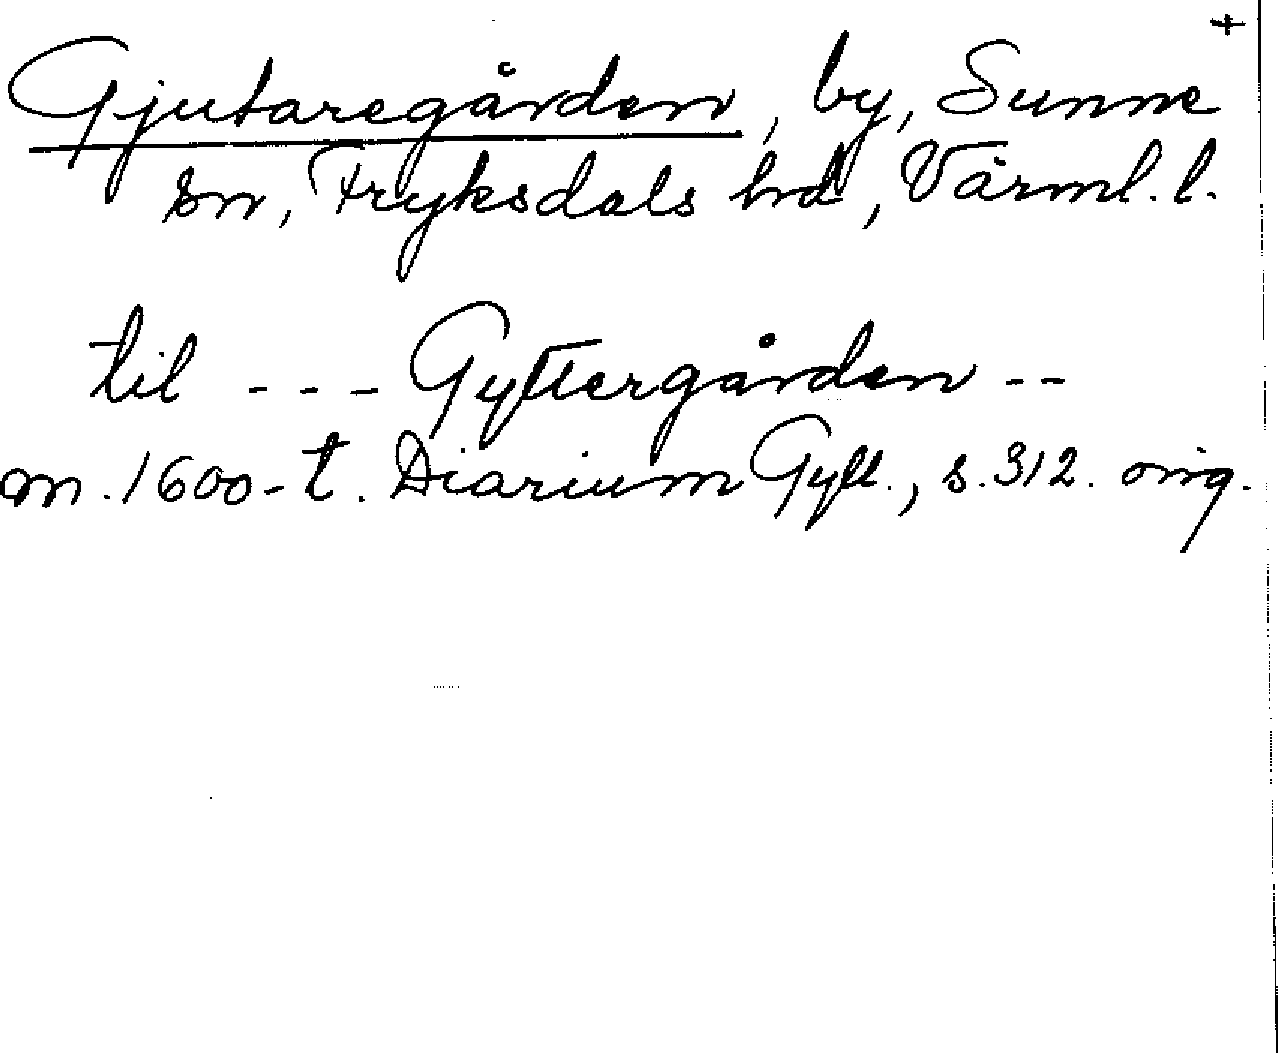 +
Gjutaregården, by, Sunne
sn, Fryksdals hd, Värml. l.
til - - - Gyttergården - -
m. 1600-t. Diarium Gyll., s. 312. orig.